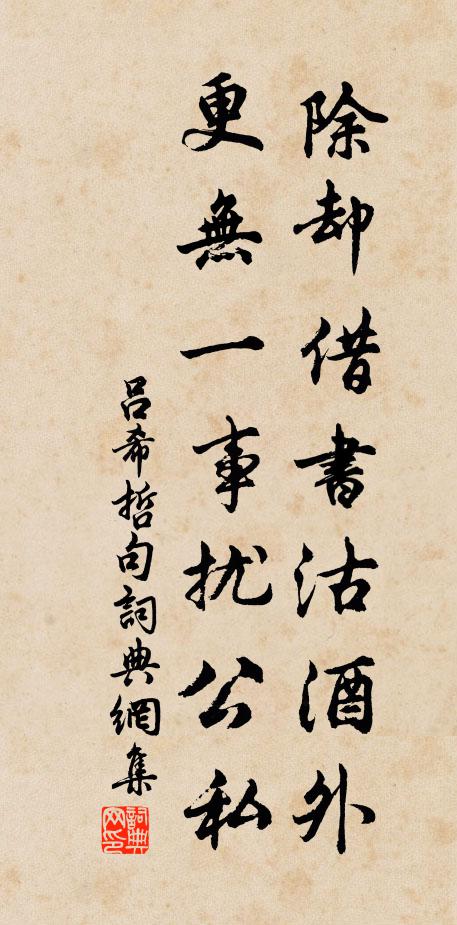 除却借書沽酒外
更無一事扰公私
呂希哲句詞典網集
詞典网印